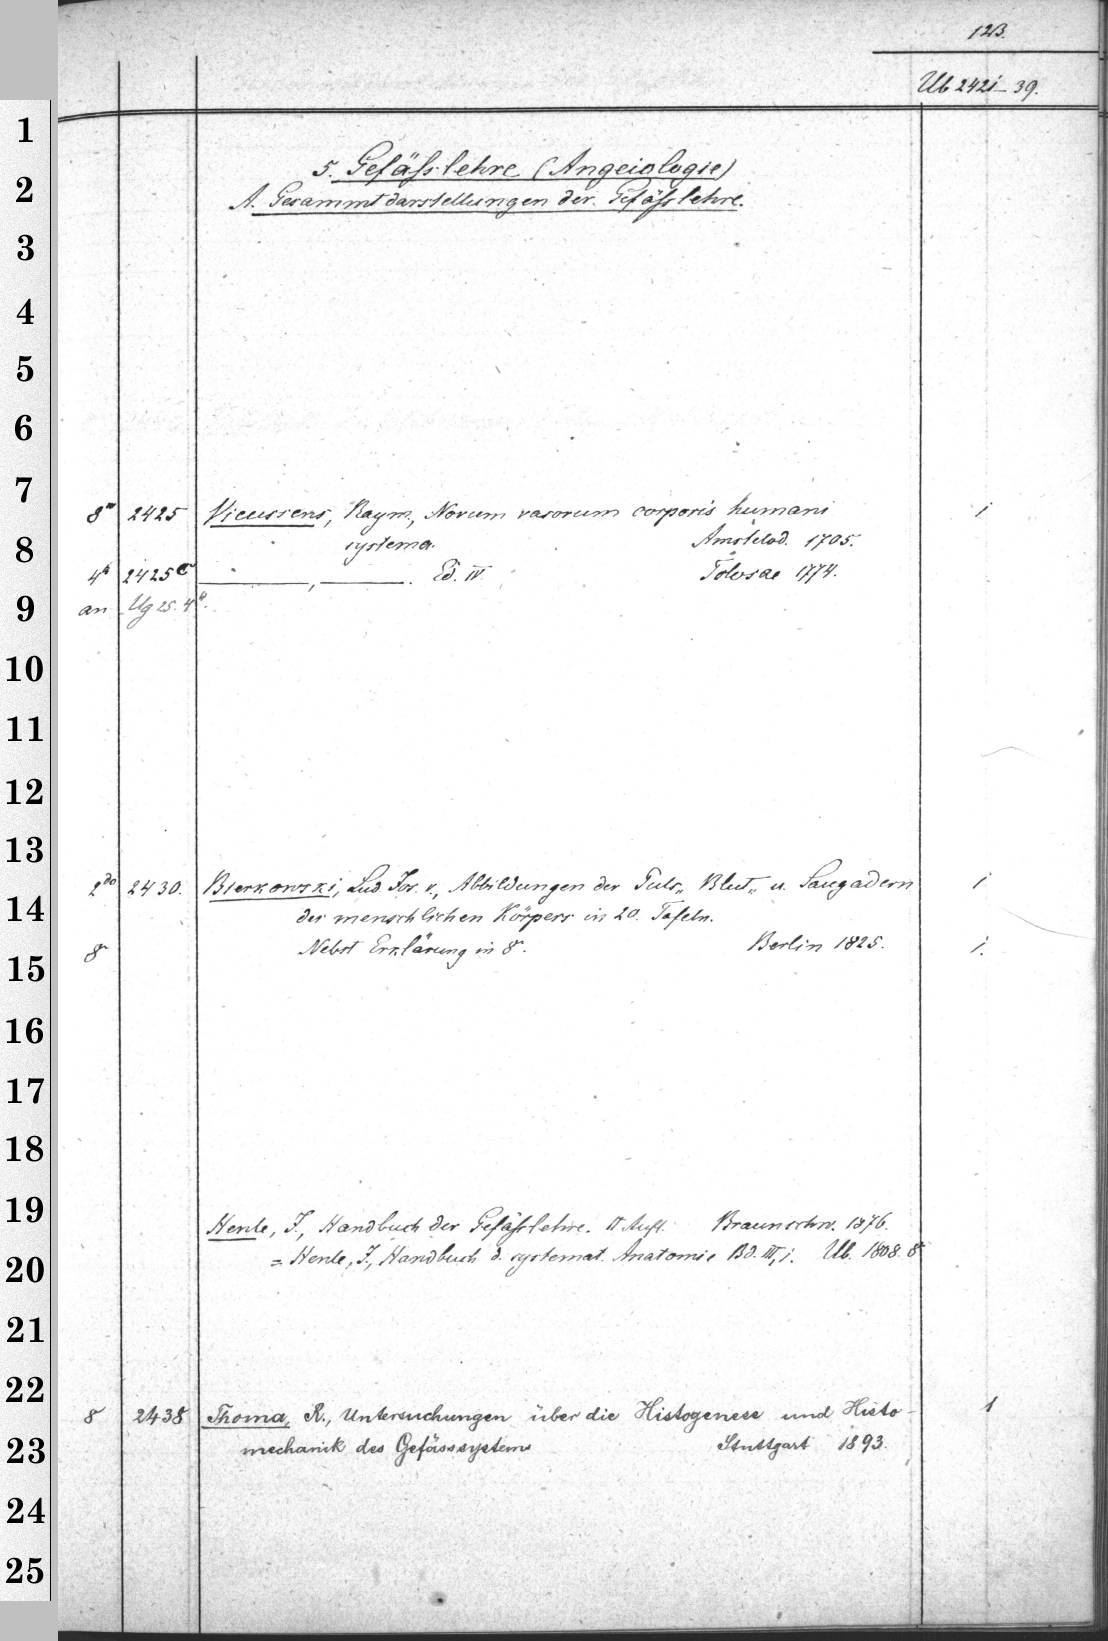 123.
Ub 2421-39.
1
5. Gefässlehre (Angeiologie)
2
A. Gesammtdarstellungen der Gefässlehre.
3
4
5
6
7
8° 2425 Vieussens, Raym., Novum vasorum corporis humani 1
8
systema. Amstelod. 1705.
4° 2425c ———, ———. Ed. IV Tolosae 1774.
9
an Ug 25. 4°.
10
11
12
13
2do 2430. Bierkowski, Lud. Jos. v., Abbildungen der Puls-, Blut- u. Saugadern 1
14
des menschlichen Körpers in 20. Tafeln.
8° Nebst Erklärung in 8°. Berlin 1825. 1.
15
16
17
18
19
Henle, J., Handbuch der Gefässlehre. II Aufl. Braunschw. 1876.
= Henle, J., Handbuch d. systemat. Anatomie Bd. III, 1. Ub. 1808. 8°
20
21
22
8° 2438 Thoma, R., Untersuchungen über die Histogenese und Histo- 1
23
mechanik des Gefässsystems Stuttgart 1893.
24
25